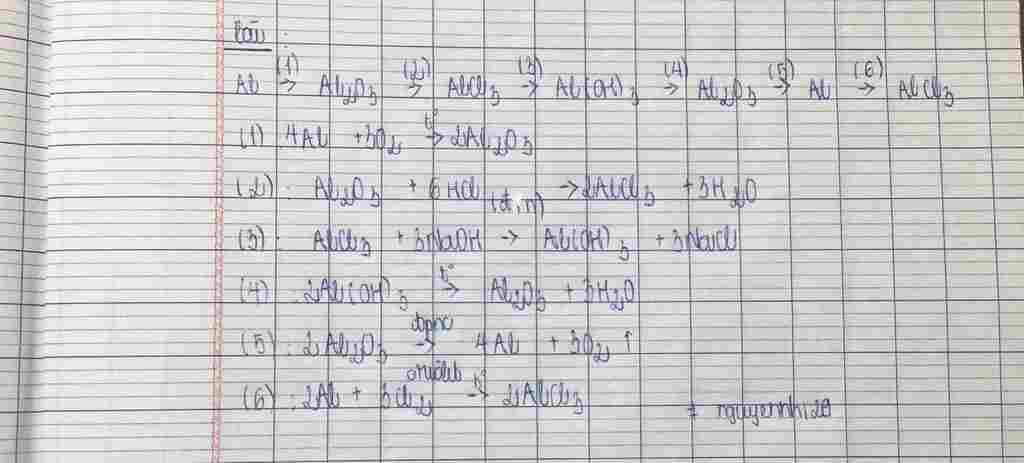 Al (1)→ Al₂O₃ (2)→ AlCl₃ (3)→ Al(OH)₃ (4)→ Al₂O₃ (5)→ Al (6)→ AlCl₃
(1) 4Al + 3O₂ t°→ 2Al₂O₃
(2): Al₂O₃ + 6HCl → 2AlCl₃ + 3H₂O
(3): AlCl₃ + 3NaOH → Al(OH)₃ + 3NaCl
(4): 2Al(OH)₃ t°→ Al₂O₃ + 3H₂O
(5): 2Al₂O₃ đpnc→ 4Al + 3O₂ ↑
criolit
(6): 2Al + 3Cl₂ t°→ 2AlCl₃